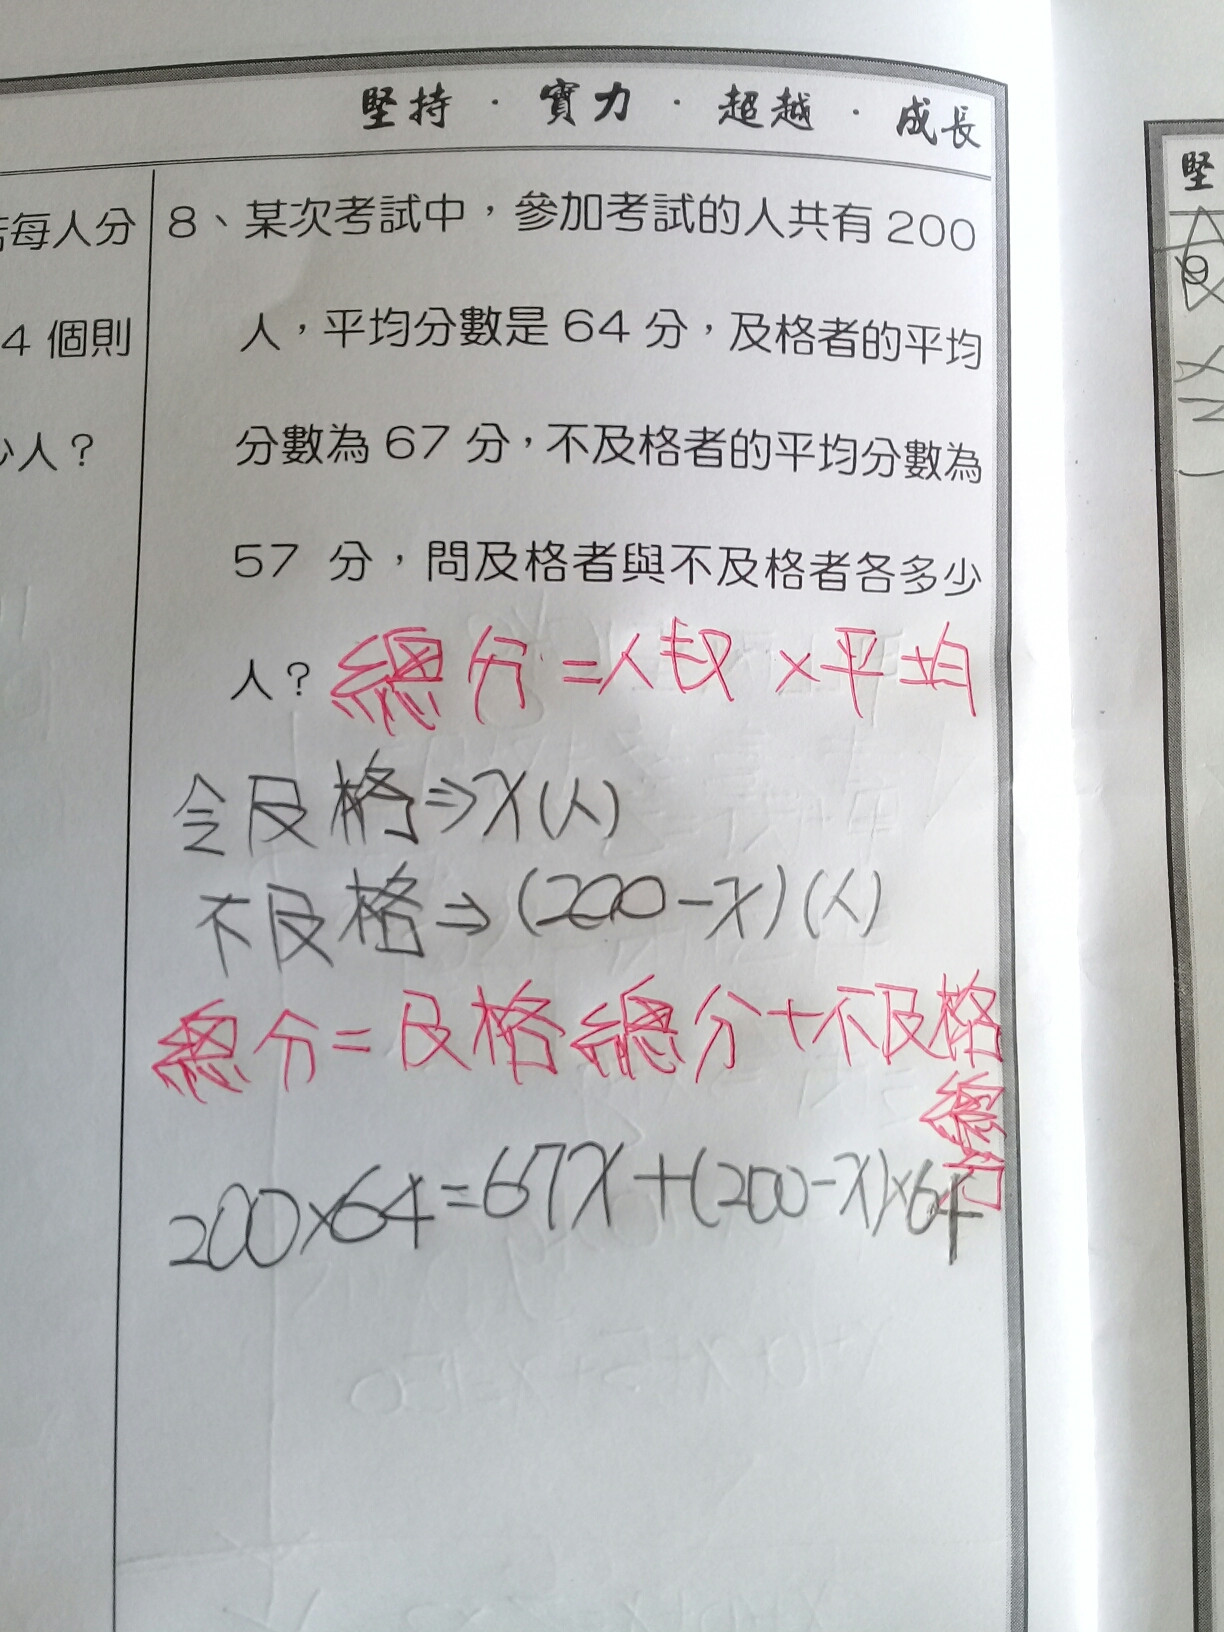 堅持・實力・超越・成長
每人分
4 個則
人？
8、某次考試中，參加考試的人共有 200
人，平均分數是 64 分，及格者的平均
分數為 67 分，不及格者的平均分數為
57 分，問及格者與不及格者各多少
人？ 總分=人数×平均
令及格⇒x(人)
不及格⇒(200-x)(人)
總分=及格總分+不及格
總分
200×64=67x+(200-x)×64
堅
9